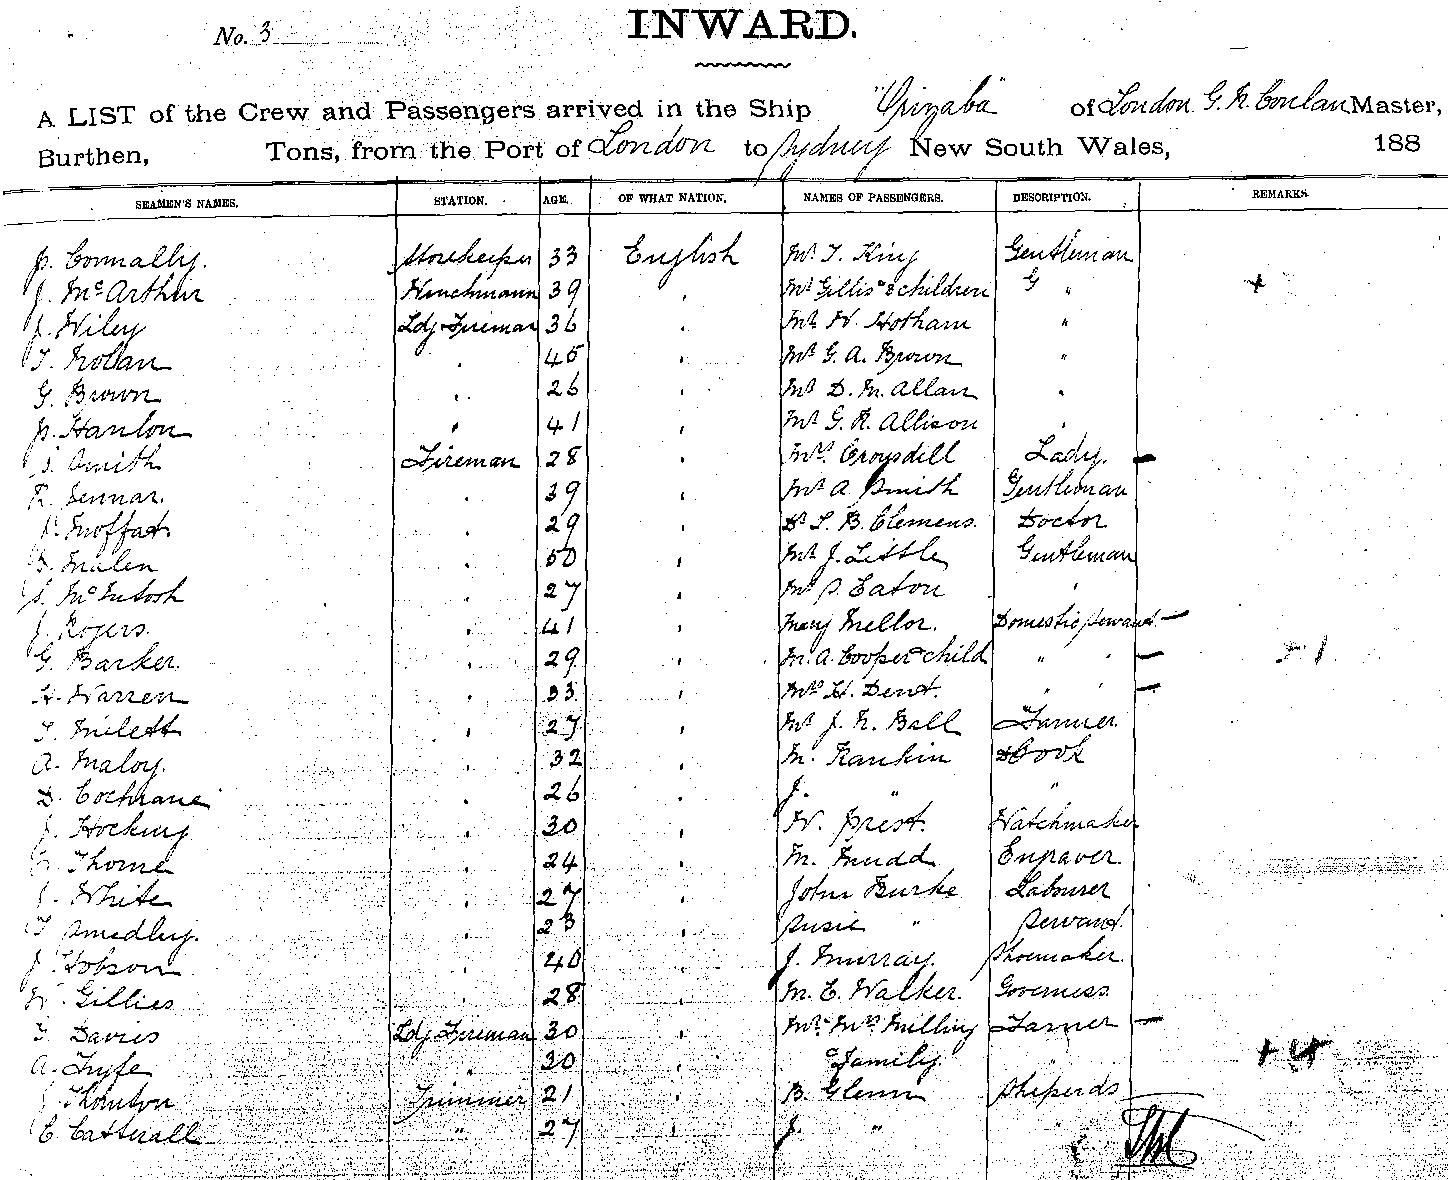 No. 3
INWARD.
A LIST of the Crew and Passengers arrived in the Ship "Orizaba" of London G. N. Conlan Master,
Burthen, Tons, from the Port of London to Sydney New South Wales, 188
SEAMEN'S NAMES. STATION. AGE. OF WHAT NATION. NAMES OF PASSENGERS. DESCRIPTION. REMARKS.
P. Connally. Storekeeper 33 English Mr T. King Gentleman
J. McArthur 39 " Mr Gillis & children G " +
J. Wiley Ldg Fireman 36 " Mr W. Hotham "
T. Nolan " 45 " Mr G. A. Brown "
G. Brown " 26 " Mr D. M. Allan "
P. Hanlon " 41 " Mr G. R. Allison "
S. Smith Fireman 28 " Mrs Croysdill Lady. -
R. Jennar. " 39 " Mr A. Smith Gentleman
Moffat " 29 " Dr L. B. Clemens. Doctor
Malen " 50 " Mr J. Little Gentleman
S. McIntosh " 27 " Mr S. Eaton "
J. Rogers. " 41 " Mary Mellor. Domestic Servant -
G. Barker. " 29 " M. A. Cooper & child " " - + 1
H. Warren " 33 " Mrs H. Dent. " " -
T. Milett " 27 " Mr J. N. Ball Farmer.
A. Maloy. " 32 " M. Rankin Cook
D. Cochrane " 26 " J. " "
J. Hocking " 30 " W. Prest. Watchmaker
Thorne " 24 " M. Mudd Engraver
J. White " 27 " John Burke Labourer
T. Smedley. " 23 " Susie " Servant.
J. Hobson " 40 " J. Murray. Shoemaker.
W. Gillies " 28 " M. E. Walker. Governess.
T. Davies Ldg Fireman 30 " Mr & Mrs Milling Farmer -
A. Fyfe " 30 " & Family. " + 4
J. Thornton Trimmer 21 " B. Glenn Sheperds
C. Catterall " 27 " J. " "